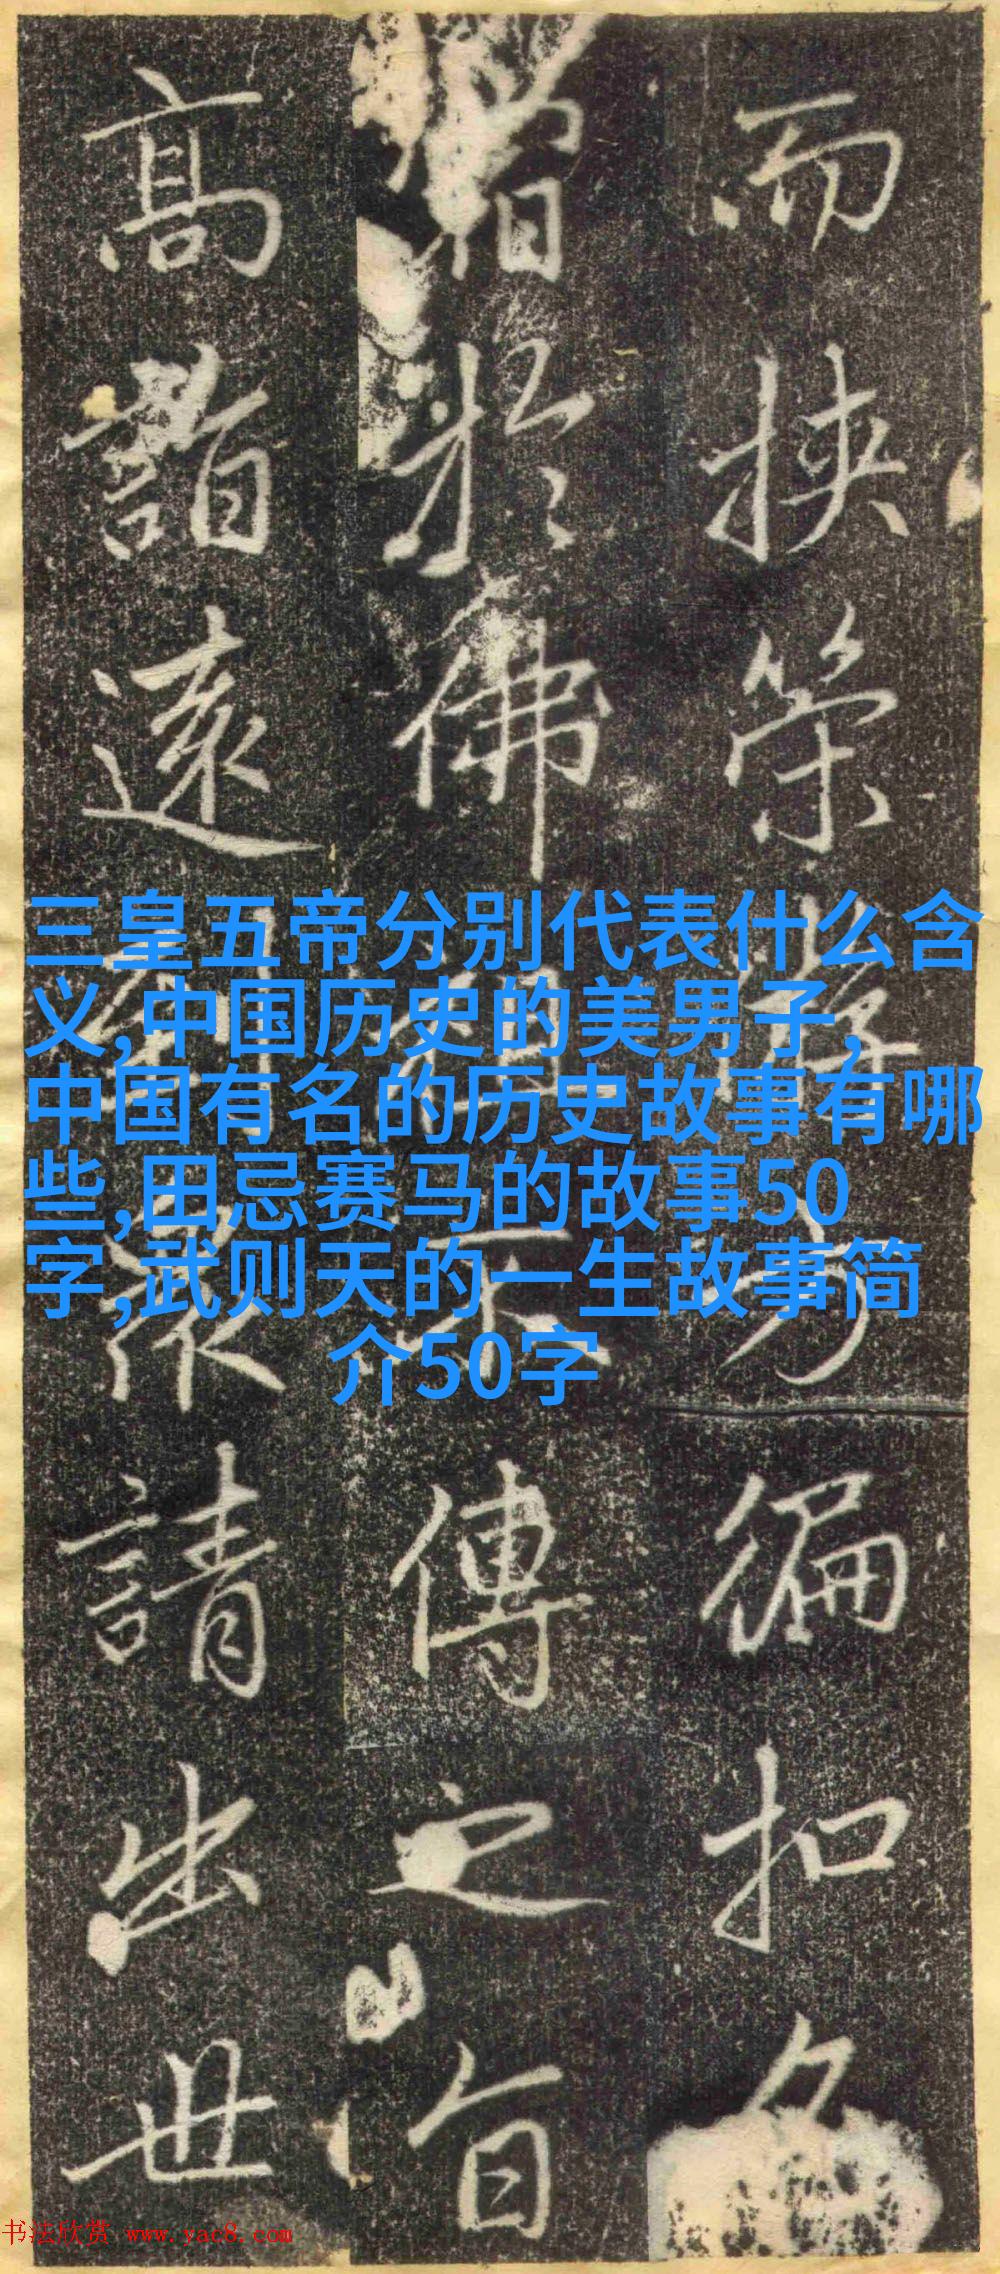 而挾策方徧扣名
於佛祖不傳之旨
高詣遠眾請出世
三皇五帝分别代表什么含
义,中国历史的美男子,
中国有名的历史故事有哪
些,田忌赛马的故事50
字,武则天的一生故事简
介50字
书法欣赏 www.yac8.com